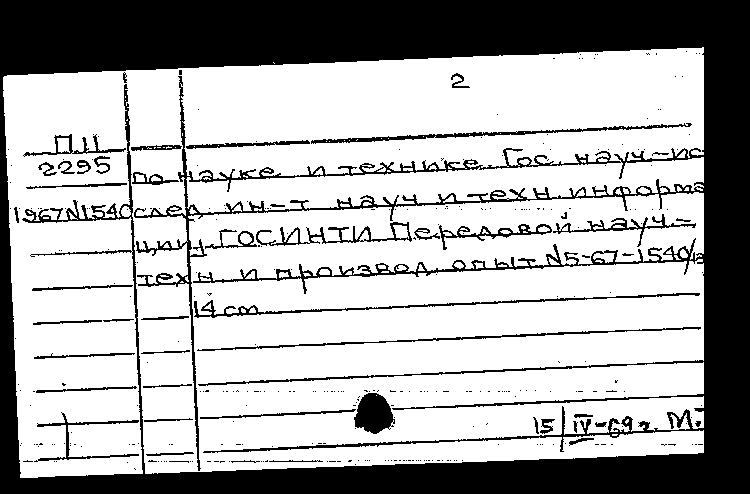 2
П.11
2295 по науке и технике Гос. науч.-ис
1967N1540 след ин-т науч и техн информа
ции ГОСИНТИ Передовой науч-
техн и производ опыт N5-67-1540/
14 cm
15/IV-69г. М.